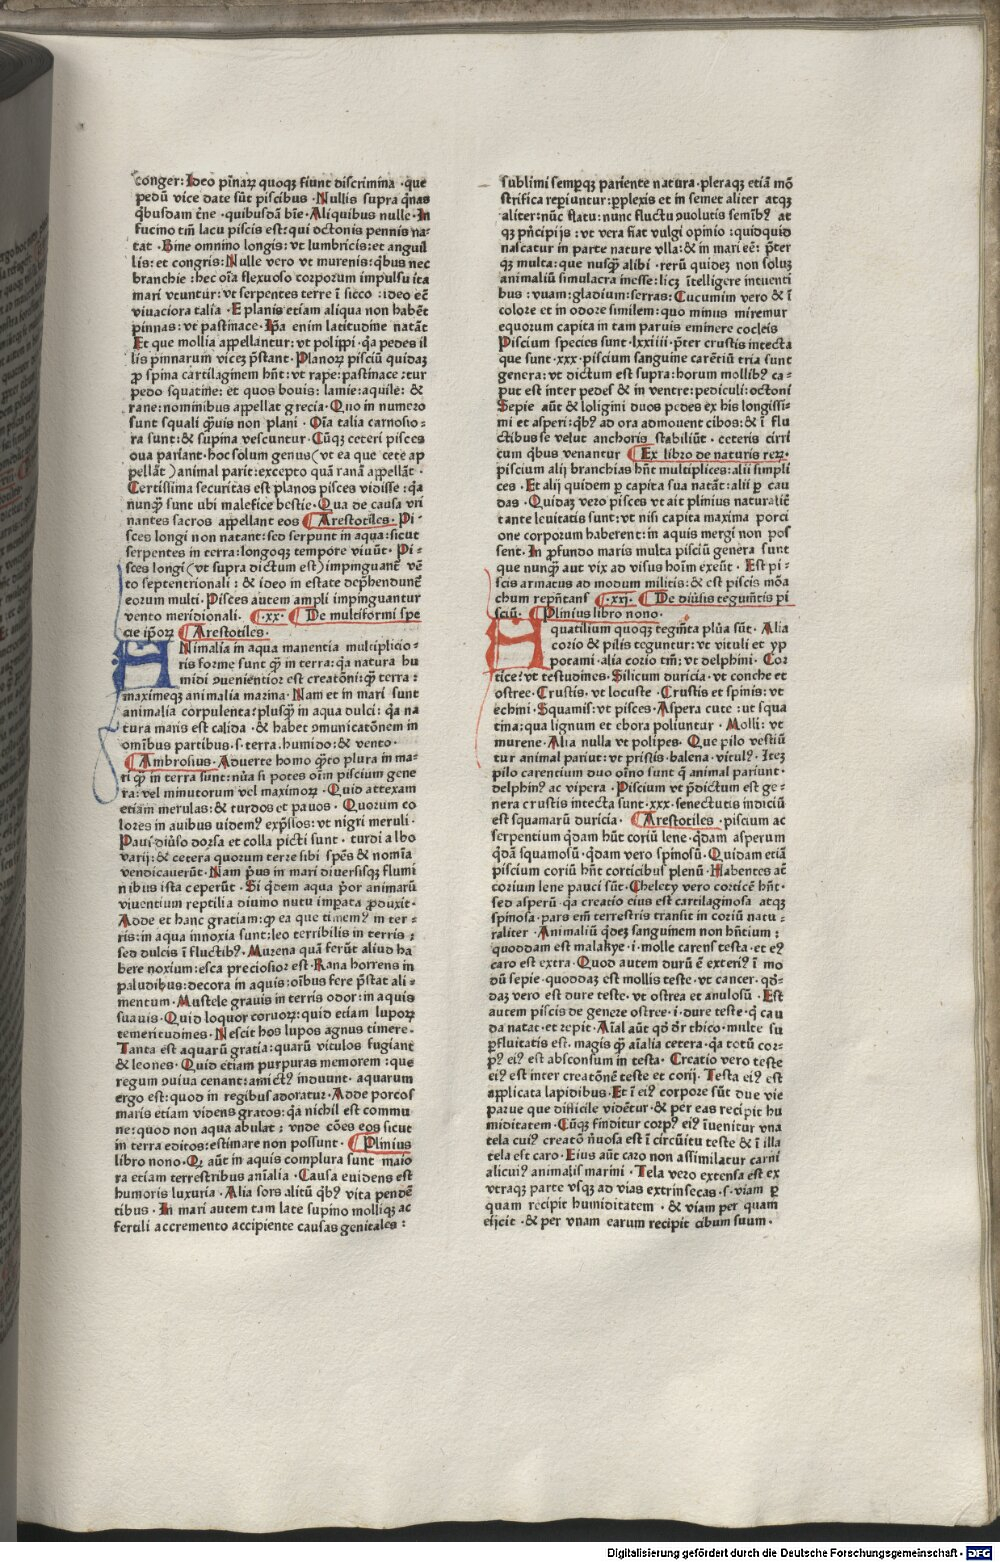 conger: Ideo pīnaꝝ quoqꝫ fiunt discrimina · que
pedū vice date sūt piscibus · Nullis supra q̄nas
q̄busdam t̄ne · quibusdā bīe · Aliquibus nulle · In
fucino tm̄ lacu piscis est: qui octonis pennis na⸗
tat · Bine omnino longis: vt lumbricis: et anguil
lis: et congris: Nulle vero vt murenis: q̄bus nec
branchie: hec oīa flexuoso corporum impulsu ita
mari vtuntur: vt serpentes terre ī sicco: ideo eē
viuaciora talia · E planis etiam aliqua non habēt
pinnas: vt pastinace · Ip̄a enim latitudine natāt
Et que mollia appellantur: vt polippi · q̄a pedes il
lis pinnarum vicez p̄stant · Planoꝝ pisciū quidaꝫ
ꝓ spina cartilaginem hn̄t: vt rape: pastinace: tur
pedo squatine: et quos bouis: lamie: aquile: &
rane: nominibus appellat grecia · Quo in numero
sunt squali q̄uis non plani · Oīa talia carnosio⸗
ra sunt: & supina vescuntur · Cūqꝫ ceteri pisces
oua pariant · hoc solum genus (vt ea que cete ap
pellāt) animal parit: excepto quā ranā appellāt ·
Certissima securitas est planos pisces vidisse: q̄a
nunq̄ꝫ sunt ubi malefice bestie · Qua de causa vri
nantes sacros appellant eos ¶ Arestotiles · Pi⸗
sces longi non natant: sed serpunt in aqua: sicut
serpentes in terra: longoqꝫ tempore viuūt · Pi⸗
sces longi (vt supra dictum est) impinguant̄ vē⸗
to septentrionali: & ideo in estate dep̄hendunt̄
eorum multi · Pisces autem ampli impinguantur
vento meridionali. ¶ · xx · ¶ De multiformi spe
cie ip̄oꝝ ¶ Arestotiles ·
ANimalia in aqua manentia multiplicio⸗
ris forme sunt q̄ꝫ in terra: q̄a natura hu
midi ꝯuenientior est creatōni: q̄ꝫ terra:
maximeqꝫ animalia marina · Nam et in mari sunt
animalia corpulenta: plusq̄ꝫ in aqua dulci: q̄a na
tura maris est calida · & habet ꝯmunicatōnem in
omībus partibus · s. terra. humido: & vento ·
¶ Ambrosius · Aduerte homo q̄nto plura in ma⸗
ri q̄ꝫ in terra sunt: nūa si potes oīm piscium gene
ra: vel minutorum vel maximoꝝ · Quid attexam
etiam merulas: & turdos et pauos · Quorum co
lores in auibus uidem? exp̄ssos: vt nigri meruli ·
Paui diūso dorsa et colla picti sunt · turdi albo
varij: & cetera quorum terre sibi spēs & nomīa
vendicauerūt · Nam p̄us in mari diuersisqꝫ flumi
nibus ista ceperūt · Si q̄dem aqua p̄or animarū
viuentium reptilia diuino nutu impata ꝓduxit ·
Adde et hanc gratiam: q̄ꝫ ea que timem? in ter⸗
ris: in aqua innoxia sunt: leo terribilis in terris:
sed dulcis ī fluctib? · Murena quā ferūt aliud ha
bere noxium: esca preciosior est · Rana horrens in
paludibus: decora in aquis: oībus fere p̄stat ali⸗
mentum · Mustele grauis in terris odor: in aquis
suauis · Quid loquor coruoꝝ: quid etiam lupoꝝ
temeritudines · Nescit hos lupos agnus timere ·
Tanta est aquarū gratia: quarū vitulos fugiant
& leones · Quid etiam purpuras memorem: que
regum ꝯuiua cenant: amict? induunt · aquarum
ergo est: quod in regibus adoratur · Adde porcos
maris etiam videns gratos: q̄a nichil est commu
ne: quod non aqua abulat: vnde cōes eos sicut
in terra editos: estimare non possunt · ¶ Plinius
libro nono · Qꝫ aūt in aquis complura sunt maio
ra etiam terrestribus anīalia · Causa euidens est
humoris luxuria · Alia sors alitū q̄b? vita pendē
tibus · In mari autem tam late supino molliqꝫ ac
fertili accremento accipiente causas genitales:
sublimi sempqꝫ pariente natura · pleraqꝫ etiā mō
strifica repiuntur: ꝑplexis et in semet aliter atqꝫ
aliter: nūc flatu: nunc fluctu ꝯuolutis semīb? at
qꝫ pn̄cipijs: vt vera fiat vulgi opinio: quidquid
nascatur in parte nature vlla: & in mari eē: p̄ter
qꝫ multa: que nusq̄ꝫ alibi · rerū quidez non soluꝫ
animaliū simulacra inesse: licꝫ ītelligere intuenti
bus: vuam: gladium: serras: Cucumim vero & ī
colore et in odore similem: quo minus miremur
equorum capita in tam paruis eminere cocleis
Piscium species sunt · lxxiiii · p̄ter crustis intecta
que sunt · xxx · piscium sanguine carētiū tria sunt
genera: vt dictum est supra: horum mollib? ca⸗
put est inter pedes & in ventre: pediculi: octoni
Sepie aūt & loligini duos pedes ex his longissi⸗
mi et asperi: q̄b? ad ora admouent cibos: & ī flu
ctibus se velut anchoris stabiliūt · ceteris cirri
cum q̄bus venantur ¶ Ex libro de naturis reꝝ ·
piscium alij branchias hn̄t multiplices: alii simpli
ces · Et alij quidem ꝑ capita sua natāt: alii ꝑ cau
das · Quidaꝫ vero pisces vt ait plinius naturalit̄
tante leuitatis sunt: vt nisi capita maxima porci
one corporum haberent: in aquis mergi non pos
sent · In ꝓfundo maris multa pisciū genera sunt
que nunq̄ꝫ aut vix ad visus hoīm exeūt · Est pi⸗
scis armatus ad modum militis: & est piscis mōa
chum repn̄tans ¶ · xxi · ¶ De diūsis tegumētis pi
sciū · ¶ Plinius libro nono ·
Aquatilium quoqꝫ tegm̄ta plūa sūt · Alia
corio & pilis teguntur: vt vituli et yp
potami · alia corio tm̄: vt delphini · Cor
tice: vt testudines · Silicum duricia · vt conche et
ostree · Crustis · vt locuste · Crustis et spinis: vt
echini · Squamis: vt pisces · Aspera cute: vt squa
tina: qua lignum et ebora poliuntur · Molli: vt
murene · Alia nulla vt polipes · Que pilo vestiū
tur animal pariut: vt pristis · balena · vitul? · Iteꝫ
pilo carentium duo oīno sunt q̄ animal pariunt ·
delphin? ac vipera · Piscium vt p̄dictum est ge⸗
nera crustis intecta sunt · xxx · senectutis indiciū
est squamarū duricia · ¶ Arestotiles · piscium ac
serpentium q̄dam hn̄t coriū lene · q̄dam asperum
q̄dā squamosū · q̄dam vero spinosū · Quidam etiā
piscium coriū hn̄t corticibus plenū · Habentes at̄
corium lene pauci sūt · Chelety vero corticē hn̄t ·
sed asperū q̄a creatio eius est cartilaginosa atqꝫ
spinosa · pars em̄ terrestris transit in coriū natu⸗
raliter · Animaliū q̄dez sanguinem non hn̄tium:
quoddam est malakye · i · molle carens testa · et e?
caro est extra · Quod autem durū ē exteri? ī mo
dū sepie · quoddaꝫ est mollis teste · vt cancer · qd̄⸗
daꝫ vero est dure teste · vt ostrea et anulosū · Est
autem piscis de genere ostree · i · dure teste · q̄ cau
da natat · et repit · Aīal aūt qd̄ dr̄ thico · multe su
ꝑfluitatis est. magis q̄ꝫ aīalia cetera · q̄a totū cor⸗
p? ei? est absconsum in testa · Creatio vero teste
ei? est inter creatōnē teste et corij · Testa ei? est
applicata lapidibus · Et ī ei? corpore sūt due vie
parue que difficile vident̄ur · & per eas recipit hu
miditatem · Cūqꝫ finditur corp? ei? īuenitur vna
tela cui? creatō n̄uosa est ī circūitu teste & ī illa
tela est caro · Eius aūt caro non assimilatur carni
alicui? animalis marini · Tela vero extensa est ex
vtraqꝫ parte vsqꝫ ad vias extrinsecas · s · viam ꝑ
quam recipit humiditatem · & viam per quam
eijcit · & per vnam earum recipit cibum suum ·
Digitalisierung gefördert durch die Deutsche Forschungsgemeinschaft - DFG